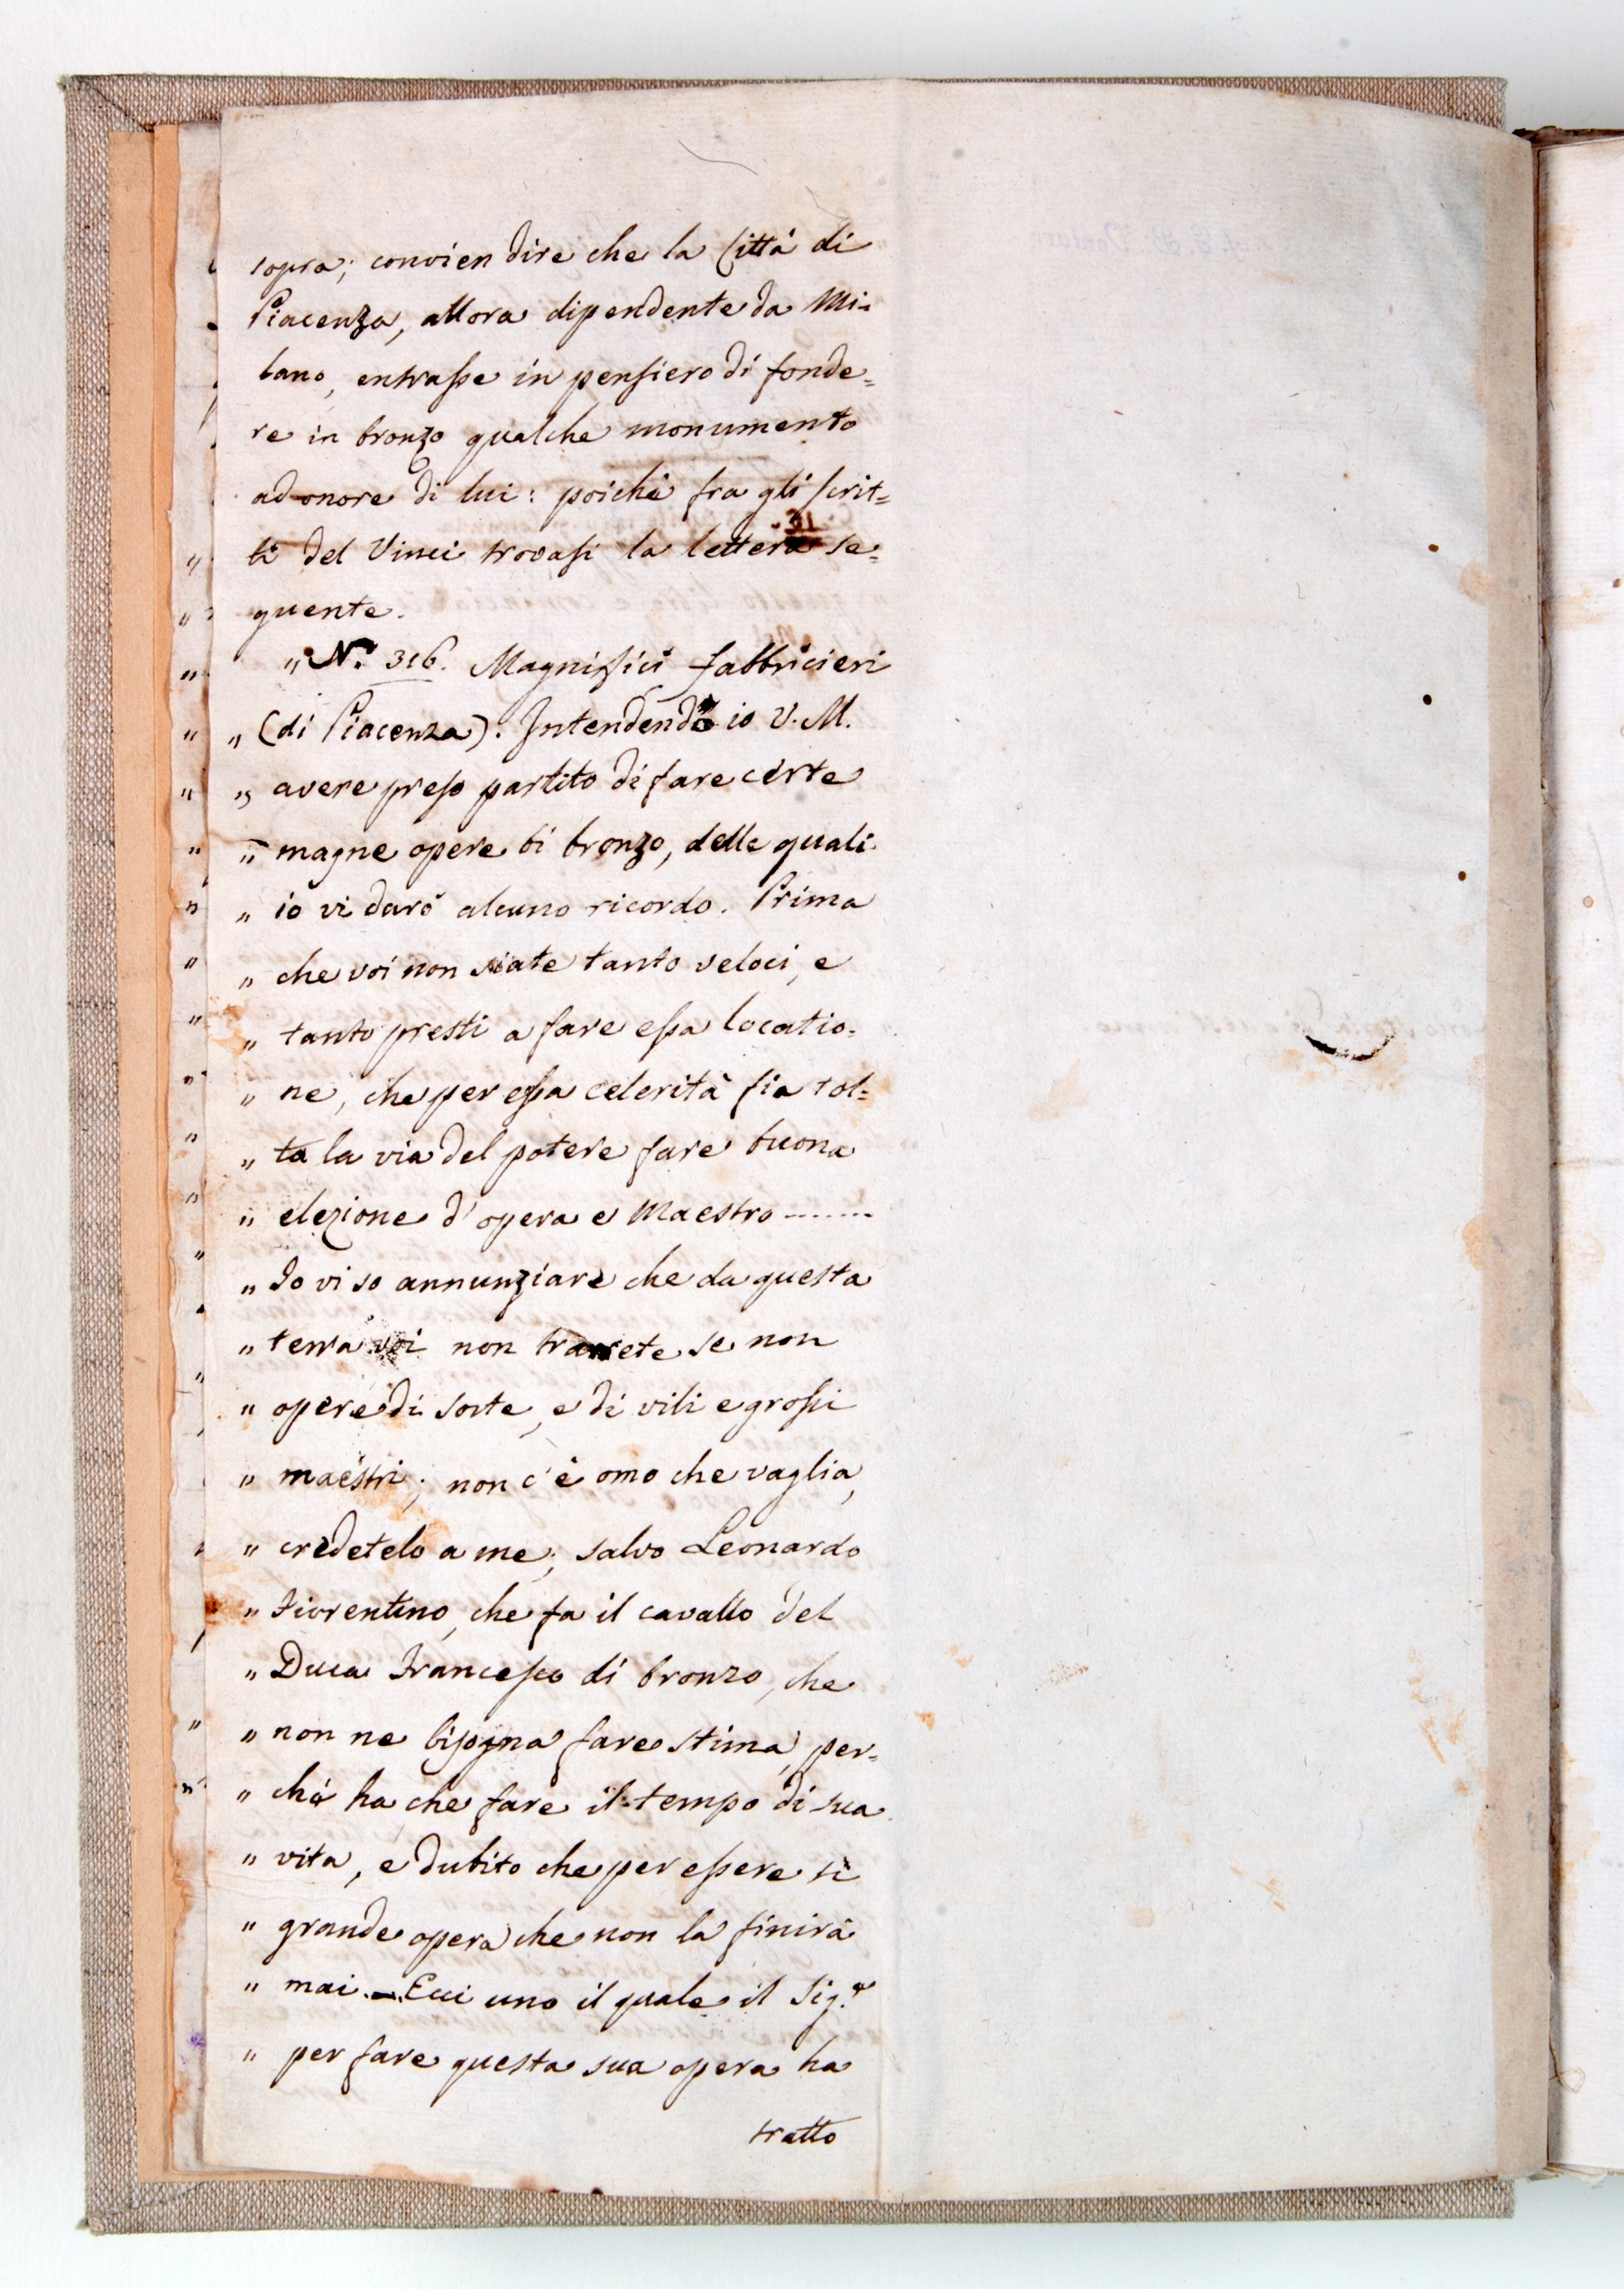 sopra; convien dire che la Città di
Piacenza, allora dipendente da Mi=
lano, entrasse in pensiero di fonde=
re in bronzo qualche monumento
ad onore di lui: poichè fra gli scrit=
ti del Vinci trovasi la lettera se=
guente.
„ N.° 316. Magnifici fabbricieri
„ (di Piacenza). Intendendo io V. M.
„ avere preso partito di fare certe
„ magne opere di bronzo, delle quali
„ io vi darò alcuno ricordo. Prima
„ che voi non siate tanto veloci, e
„ tanto presti a fare essa locatio=
„ ne, che per essa celerità sia tol=
„ ta la via del potere fare buona
„ elezione d'opera e maestro .......
„ Io vi so annunziare che da questa
„ terra voi non trarrete se non
„ opere di sorte, e di vili e grossi
„ maestri; non c'è omo che vaglia,
„ credetelo a me; salvo Leonardo
„ Fiorentino, che fa il cavallo del
„ Duca Francesco di bronzo, che
„ non ne bisogna fare stima, per=
„ chè ha che fare il tempo di sua
„ vita, e dubito che per essere sì
„ grande opera che non la finirà
„ mai. — Ecci uno il quale il Sig.r
„ per fare questa sua opera ha
tratto